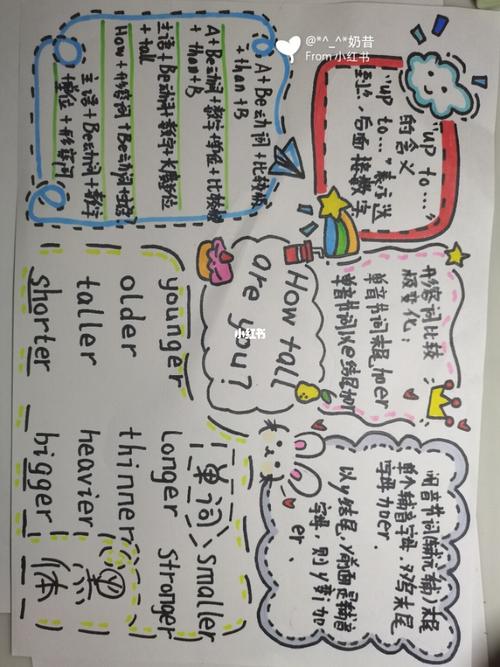 @*^_^*奶昔
From 小红书
"up to …"
的含义
"up to …"表示
到达,后面接数字
形容词比较
级变化:
单音节词末尾加er
单音节词以e结尾加r
闭音节词(辅元辅)末尾
单个辅音字母,双写末尾
字母加er.
以y结尾,y前面是辅音
字母,则y变i加
er.
How tall
are you?
小红书
A+Be动词+比较级
+than+B
A+Be动词+数字+单位+比较级
+than+B
主语+Be动词+数字+长度单位
+tall
How+形容词+Be动词+主语?
主语+Be动词+数字+
单位+形容词
单词
younger
older
taller
shorter
smaller
longer stronger
thinner
heavier
bigger